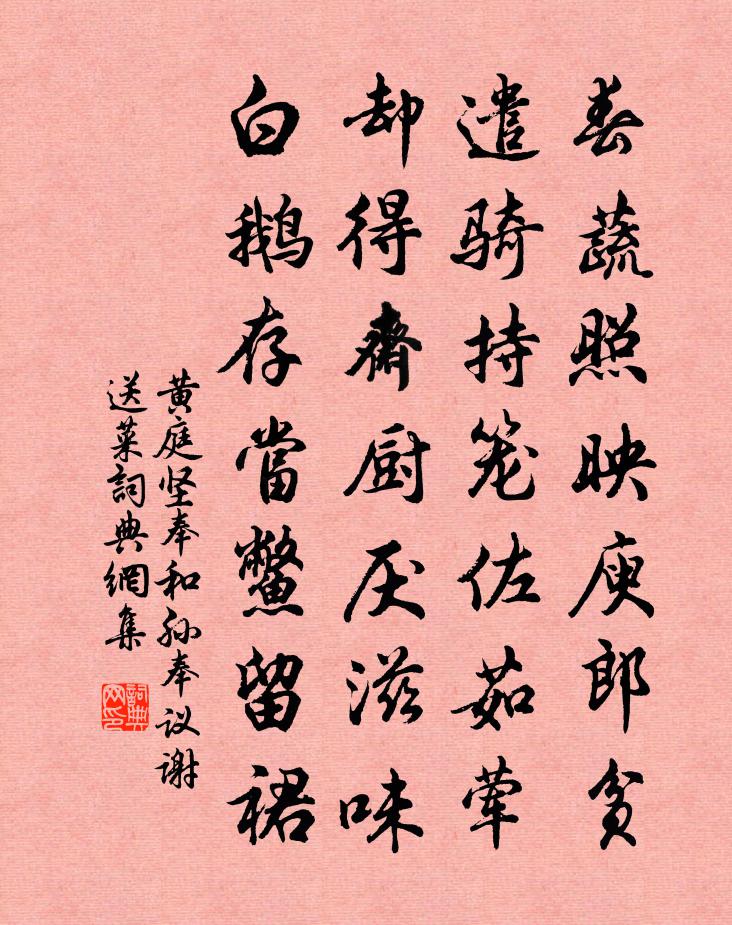 春蔬照映庾郎贫
遣骑持笼佐茹荤
却得齋厨厌滋味
白鹅存當鳖留裙
黄庭坚奉和孙奉议谢
送菜詞典網集
詞典网印